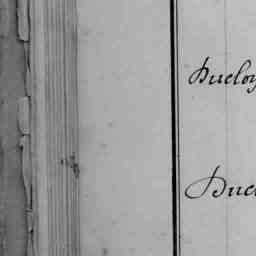 Dueloy
Duc